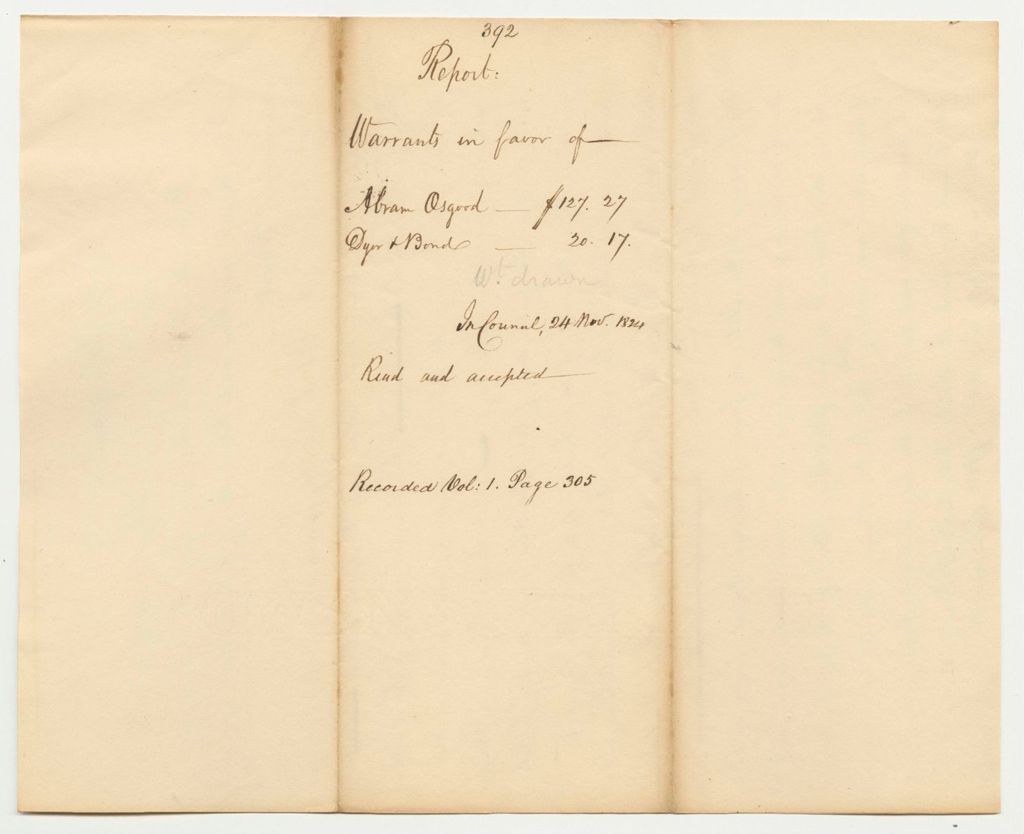 392
Report:
Warrants in favor of
Abram Osgood — $127. 27
Dyer & Bond — 20. 17.
Wt. drawn
In Council, 24 Nov. 1824
Read and accepted
Recorded Vol: 1. Page 305